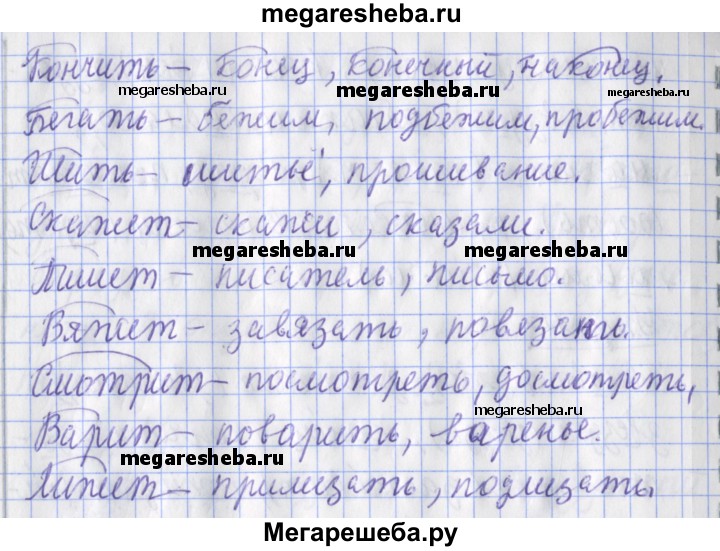 megaresheba.ru
Кончить – конец, конечный, наконец.
megaresheba.ru megaresheba.ru megaresheba.ru
Бегать – бежим, подбежим, пробежим.
Шить – шитьё, прошивание.
Скажет – скажи, сказали.
megaresheba.ru megaresheba.ru
Пишет – писатель, письмо.
Вяжет – завязать, повязать.
Смотрит – посмотреть, досмотреть,
megaresheba.ru
Варит – поварить, варенье.
megaresheba.ru
Лижет – прилизать, подлизать.
Мегарешеба.ру